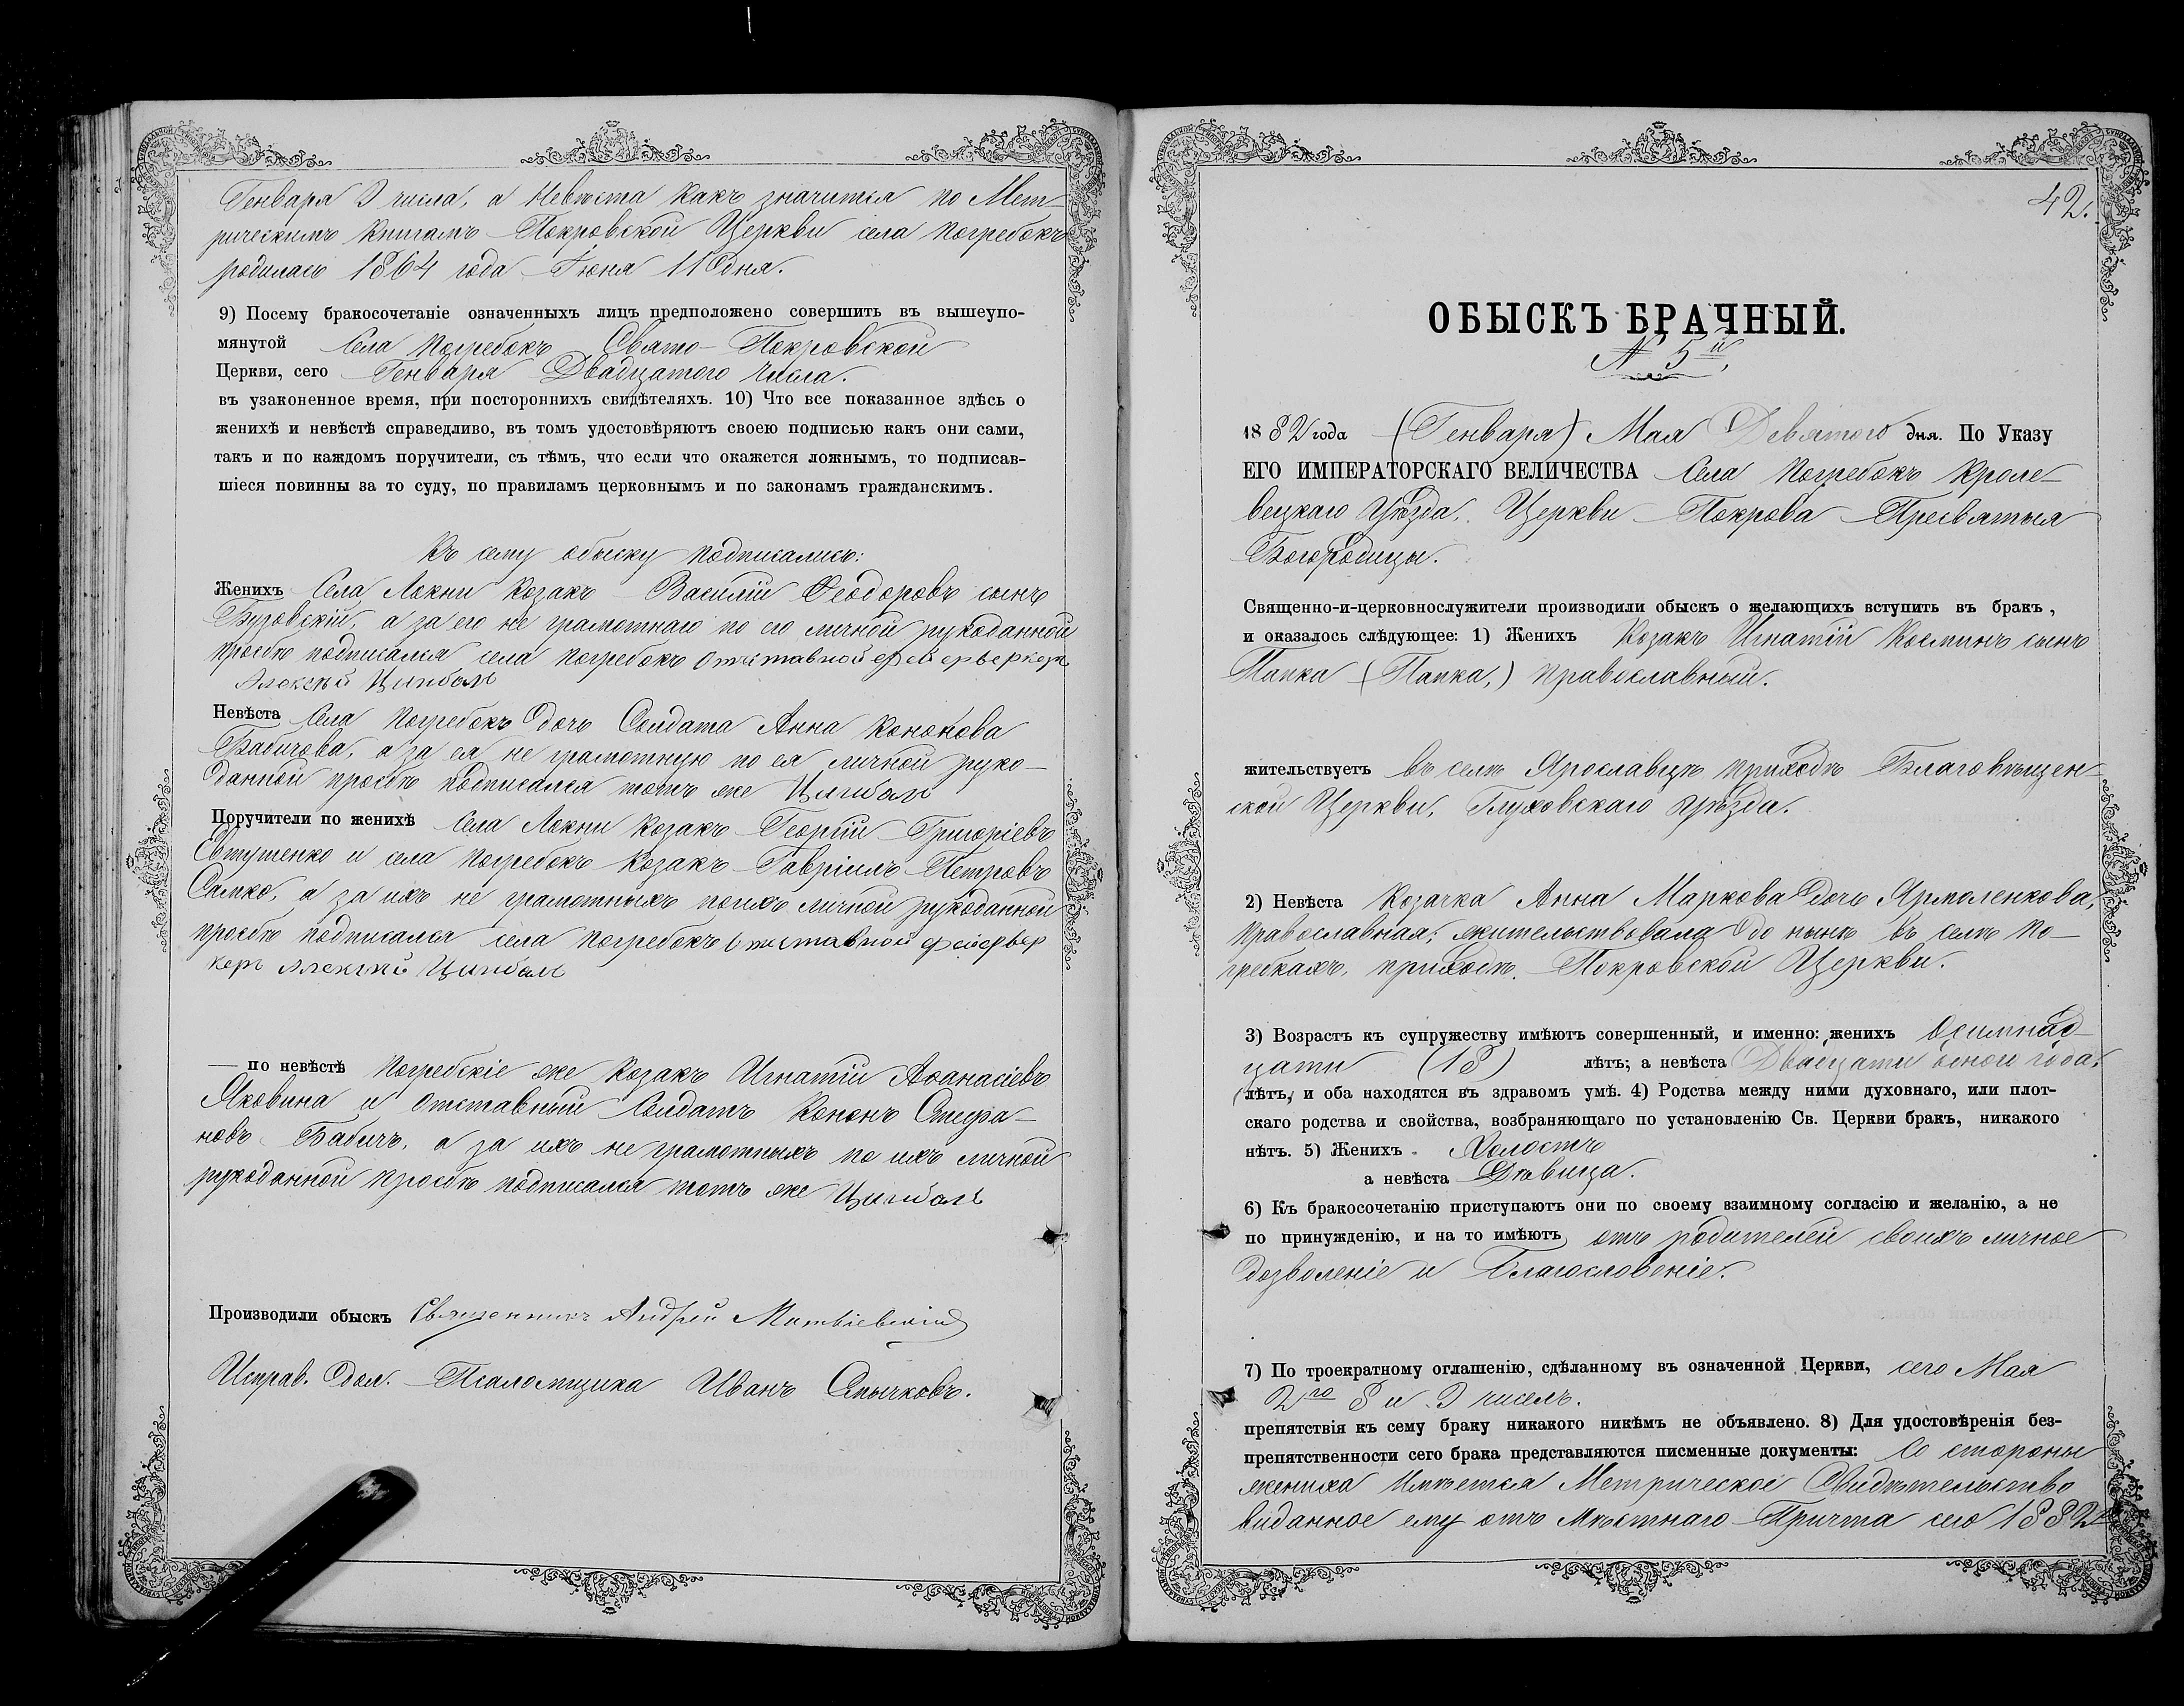 Генваря 9 числа, а Невѣста какъ значится по Мет-
рическимъ Книгамъ Покровской Церкви села Погребокъ
родилась 1864 года Іюня 11 дня.
9) Посему бракосочетаніе означенныхъ лицъ предположено совершить въ вышеупо-
мянутой Села Погребокъ Свято-Покровской
Церкви, сего Генваря Двадцатого числа.
въ узаконенное время, при постороннихъ свидѣтеляхъ. 10) Что все показанное здѣсь о
женихѣ и невѣстѣ справедливо, въ томъ удостовѣряютъ своею подписью какъ они сами,
такъ и по каждомъ поручители, съ тѣмъ, что если что окажется ложнымъ, то подписав-
шіеся повинны за то суду, по правиламъ церковнымъ и по законамъ гражданскимъ.
Къ сему обыску подписались:
Женихъ Села Локни козакъ Василій Ѳеодоровъ сынъ
Бузовскій, а за его не грамотнаго по его личной рукоданной
просьбѣ подписался села Погребокъ Отставной фейерверкеръ
Алексѣй Цимбалъ
Невѣста Села Погребокъ дочь Солдата Анна Кононова
Бабичова, а за ея не грамотную по ея личной руко-
данной просьбѣ подписался тотъ же Цимбалъ
Поручители по женихѣ Села Локни козакъ Георгій Григоріевъ
Евтушенко и села Погребокъ козакъ Гавріилъ Петровъ
Самко, а за ихъ не грамотныхъ по ихъ личной рукоданной
просьбѣ подписался села Погребокъ Отставной фейервер
керъ Алексѣй Цимбалъ
— по невѣстѣ Погребскіе же козакъ Игнатій Аѳанасіевъ
Яковина и отставный Солдатъ Кононъ Стефа-
новъ Бабичъ, а за ихъ не грамотныхъ по ихъ личной
рукоданной просьбѣ подписался тотъ же Цимбалъ
Производили обыскъ Священникъ Андрей Матвіевскій
Исправ. дол. Псаломщика Иванъ Смычковъ.
42.
ОБЫСКЪ БРАЧНЫЙ.
№ 5й
1882 года (Генваря) Мая Девятого дня. По Указу
ЕГО ИМПЕРАТОРСКАГО ВЕЛИЧЕСТВА Села Погребокъ Кроле-
вецкаго Уѣзда, Церкви Покрова Пресвятыя
Богородицы.
Священно-и-церковнослужители производили обыскъ о желающихъ вступить въ бракъ,
и оказалось слѣдующее: 1) Женихъ Козакъ Игнатій Косминъ сынъ
Папка (Папка,) православный.
жительствуетъ въ селѣ Ярославцѣ приходѣ Благовѣщен-
ской Церкви, Глуховскаго уѣзда.
2) Невѣста Козачка Анна Маркова дочь Ярмоленкова,
православная; жительствовала до нынѣ въ селѣ По-
гребкахъ, приходѣ Покровской Церкви.
3) Возрастъ къ супружеству имѣютъ совершенный, и именно: женихъ Осимнад-
цати (18) лѣтъ; а невѣста Двадцати одного года.
(лѣтъ, и оба находятся въ здравомъ умѣ. 4) Родства между ними духовнаго, или плот-
скаго родства и свойства, возбраняющаго по установленію Св. Церкви бракъ, никакого
нѣтъ. 5) Женихъ Холостъ
а невѣста Дѣвица.
6) Къ бракосочетанію приступаютъ они по своему взаимному согласію и желанію, а не
по принужденію, и на то имѣютъ отъ родителей своихъ личное
дозволеніе и благословеніе.
7) По троекратному оглашенію, сдѣланному въ означенной Церкви, сего Мая
2го 8 и 9 чиселъ.
препятствія къ сему браку никакого никѣмъ не объявлено. 8) Для удостовѣренія без-
препятственности сего брака представляются писменные документы: Со стороны
жениха Имѣется Метрическое Свидѣтельство
виданное ему отъ Мѣстнаго Причта сего 1882